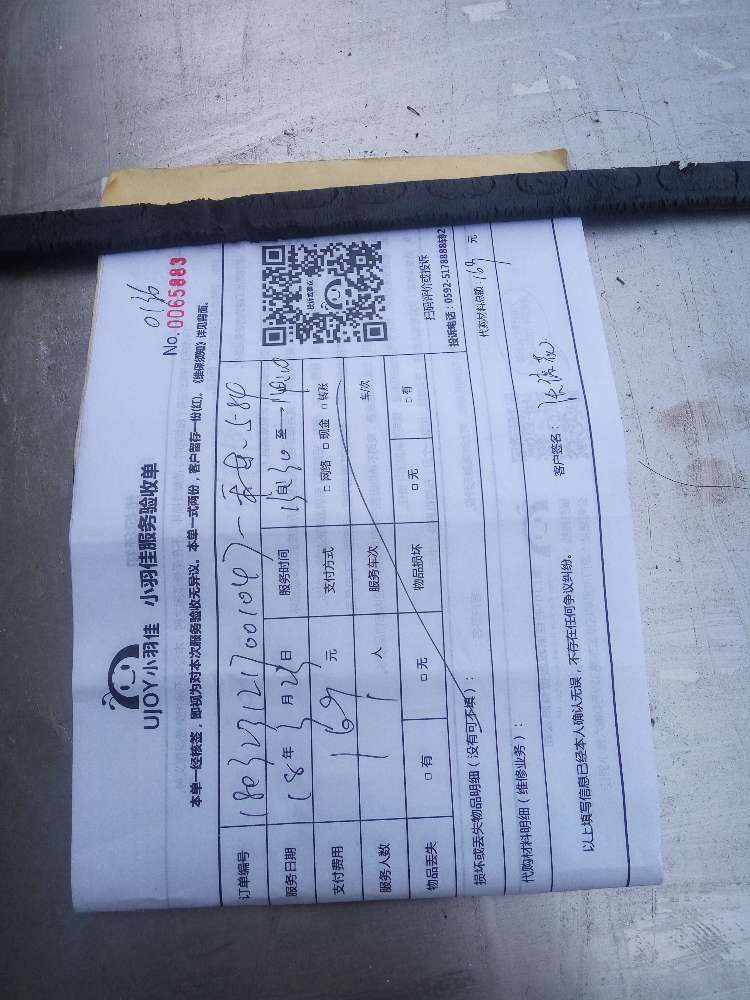 UJOY小羽佳 小羽佳服务验收单
0136
No. 0065883
本单一经核签，即视为对本次服务验收无异议。本单一式两份，客户留存一份(红)。《维保须知》详见背面。
订单编号
服务日期 18年3月23日 服务时间 至
支付费用 169元 支付方式 □ 网络 □ 现金 □ 转账
服务人数 1人 服务车次 车次
物品丢失 □ 有 □ 无 物品损坏 □ 无 □ 有
扫码评价或投诉
投诉电话：0592-5178888转2
损坏或丢失物品明细（没有可不填）：
代购材料明细（维修业务）： 代购材料总额：169元
以上填写信息已经本人确认无误，不存在任何争议纠纷。 客户签名：